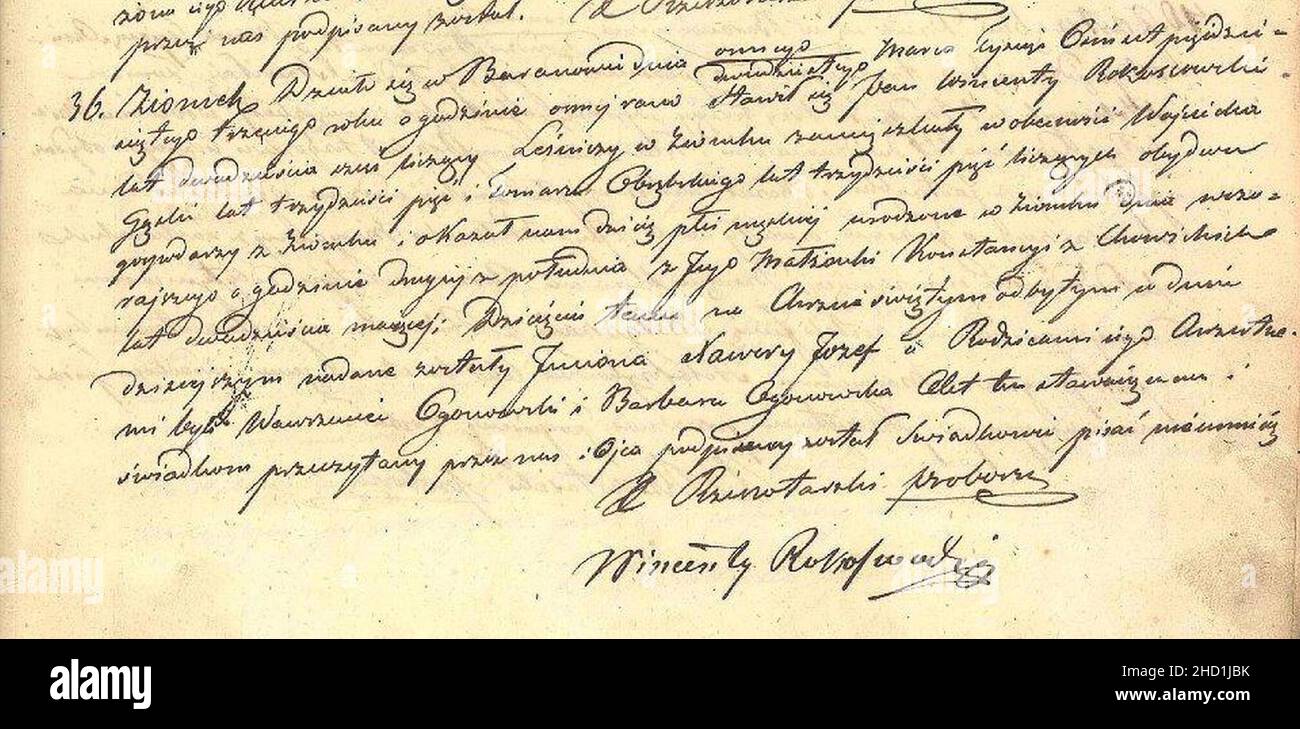 przez nas podpisany został.
36. Ziomek Działo się w Baranowie dnia ośmnego dwudziestego Marca tysiąc Ośmset pięćdzie-
siątego trzeciego roku o godzinie ósmej rano Stawił się Pan Wincenty Rokossowski
lat dwadzieścia sześć liczący Leśniczy w Ziomku zamieszkały w obecności Wojciecha
lat trzydzieści pięć i Tomasza lat trzydzieści pięć liczących obydwu
gospodarzy z Ziomku i okazał nam dziecię płci męzkiej urodzone w Ziomku dnia wczo-
rajszego o godzinie drugiej z południa z Jego Małżonki Konstancyi z
lat dwadzieścia mającej. Dziecięciu temu na Chrzcie świętym odbytym w dniu
dzisiejszym nadane zostały Imiona Xawery Józef a Rodzicami jego Chrzestne-
mi byli Wawrzeniec Ogonowski i Barbara Ogonowska Akt ten stawającemu i
świadkom przeczytany przez nas i Ojca podpisany został Świadkowie pisać nieumieją
X proboszcz
Wincenty Rokossowski
alamy
Image ID: 2HD1JBK
www.alamy.com